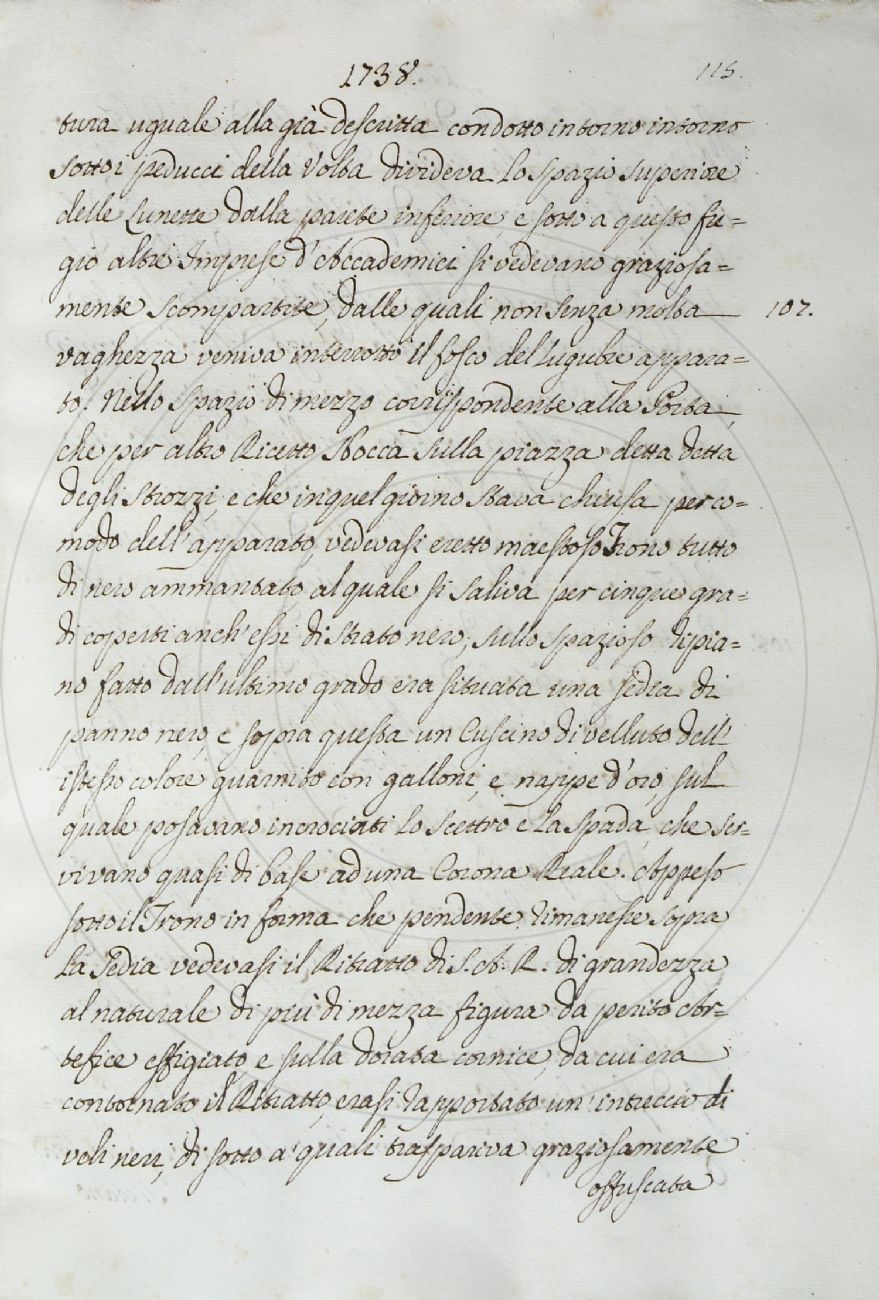 1738.
115.
tura uguale alla già descritta condotto intorno intorno
sotto i peducci della Volta divideva lo spazio superiore
delle Lunette dalla parete inferiore, e sotto a questo fre=
gio altre Imprese d'Accademici si vedevano graziosa=
mente scompartite, dalle quali non senza molta
107.
vaghezza veniva interrotto il fosco del lugubre appara=
to. Nello spazio di mezzo corrispondente alla Porta,
che per altro Ricetto sbocca sulla piazza detta detta
degli Strozzi, e che in quel giorno stava chiusa per co=
modo dell'apparato, vedevasi eretto maestoso Trono tutto
di nero ammantato, al quale si saliva per cinque gra=
di coperti anch'essi di strato nero; sullo spazioso ripia=
no fatto dall'ultimo grado era situata una sedia di
panno nero, e sopra questa un Cuscino di velluto dell'
istesso colore guarnito con galloni, e nappe d'oro, sul
quale posavano incrociati lo scettro e la spada, che ser=
vivano quasi di base ad una Corona Reale. Appeso
sotto il Trono in forma che pendente rimanesse sopra
la Sedia vedevasi il Ritratto di S. A. R. di grandezza
al naturale di più di mezza figura da perito Ar=
tefice effigiato, e sulla dorata cornice, da cui era
contornato il Ritratto, erasi rapportato un'intreccio di
veli neri, di sotto a' quali traspariva graziosamente
offuscata